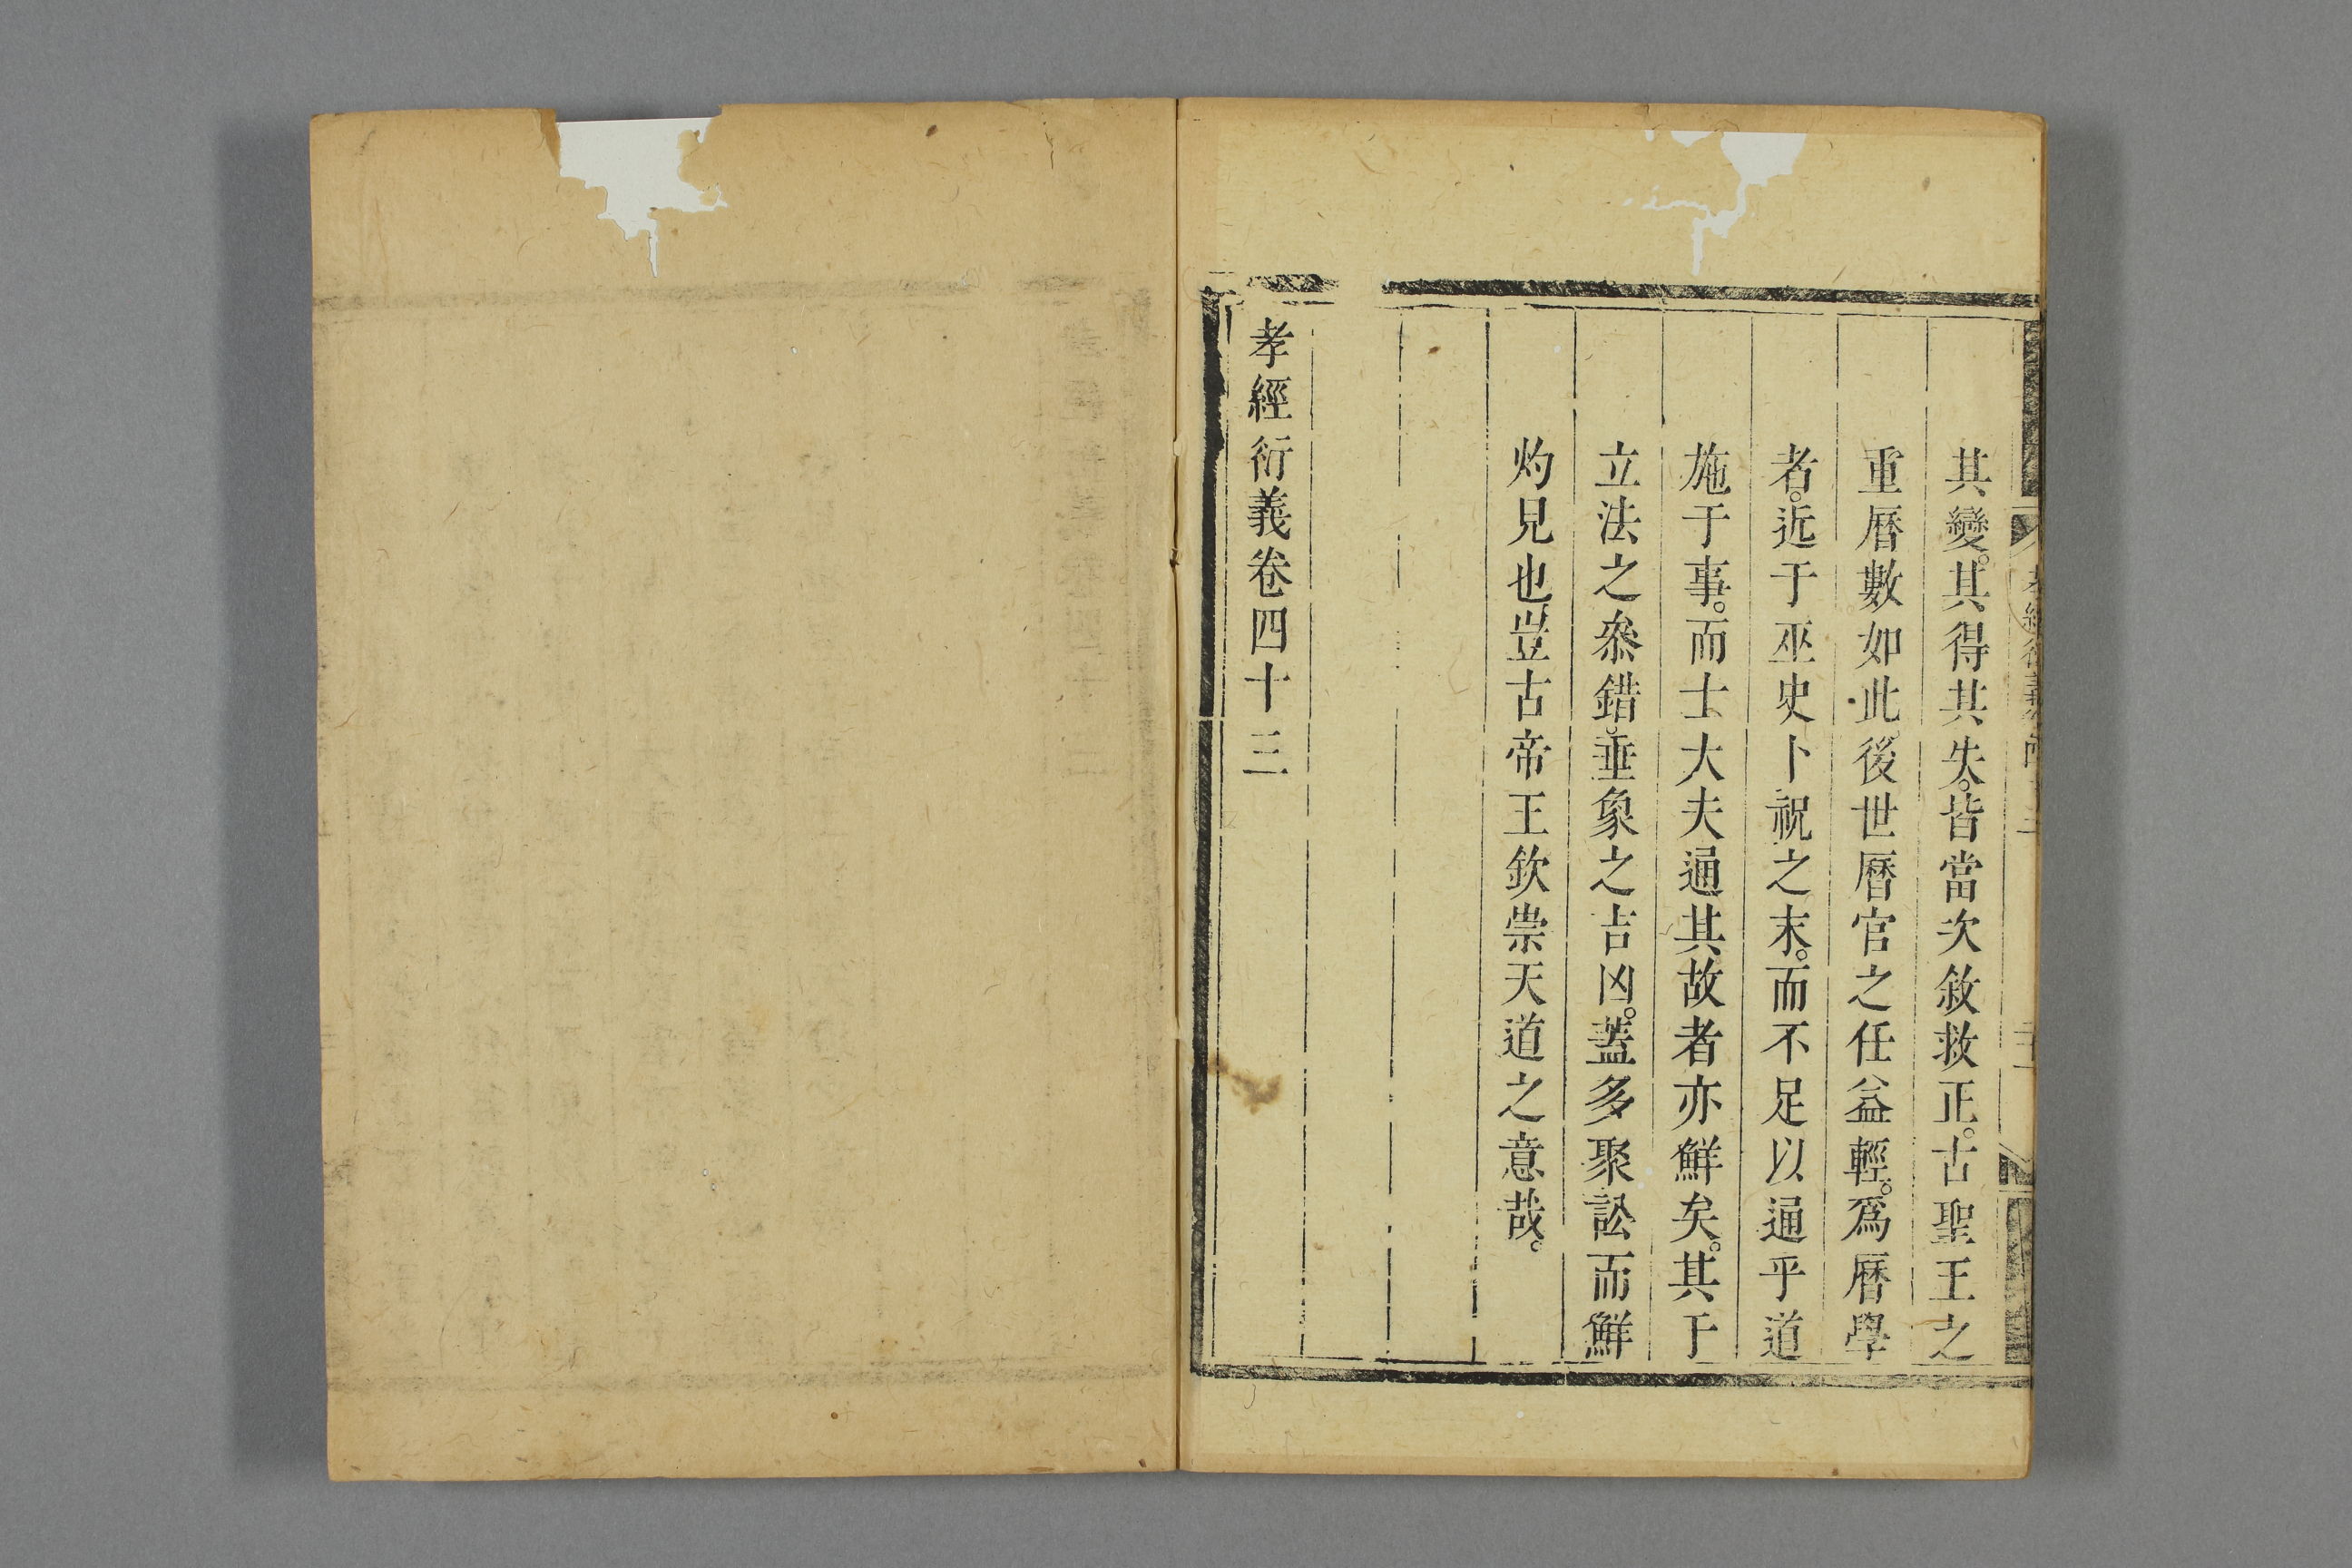 其變。其得其失。皆當次敘救正。古聖王之
重曆數如此。後世曆官之任益輕。爲曆學
者。近于巫史卜祝之末。而不足以通乎道
施于事。而士大夫通其故者亦鮮矣。其于
立法之叅錯。垂象之吉凶。蓋多聚訟而鮮
灼見也豈古帝王欽崇天道之意哉。
孝經衍義卷四十三